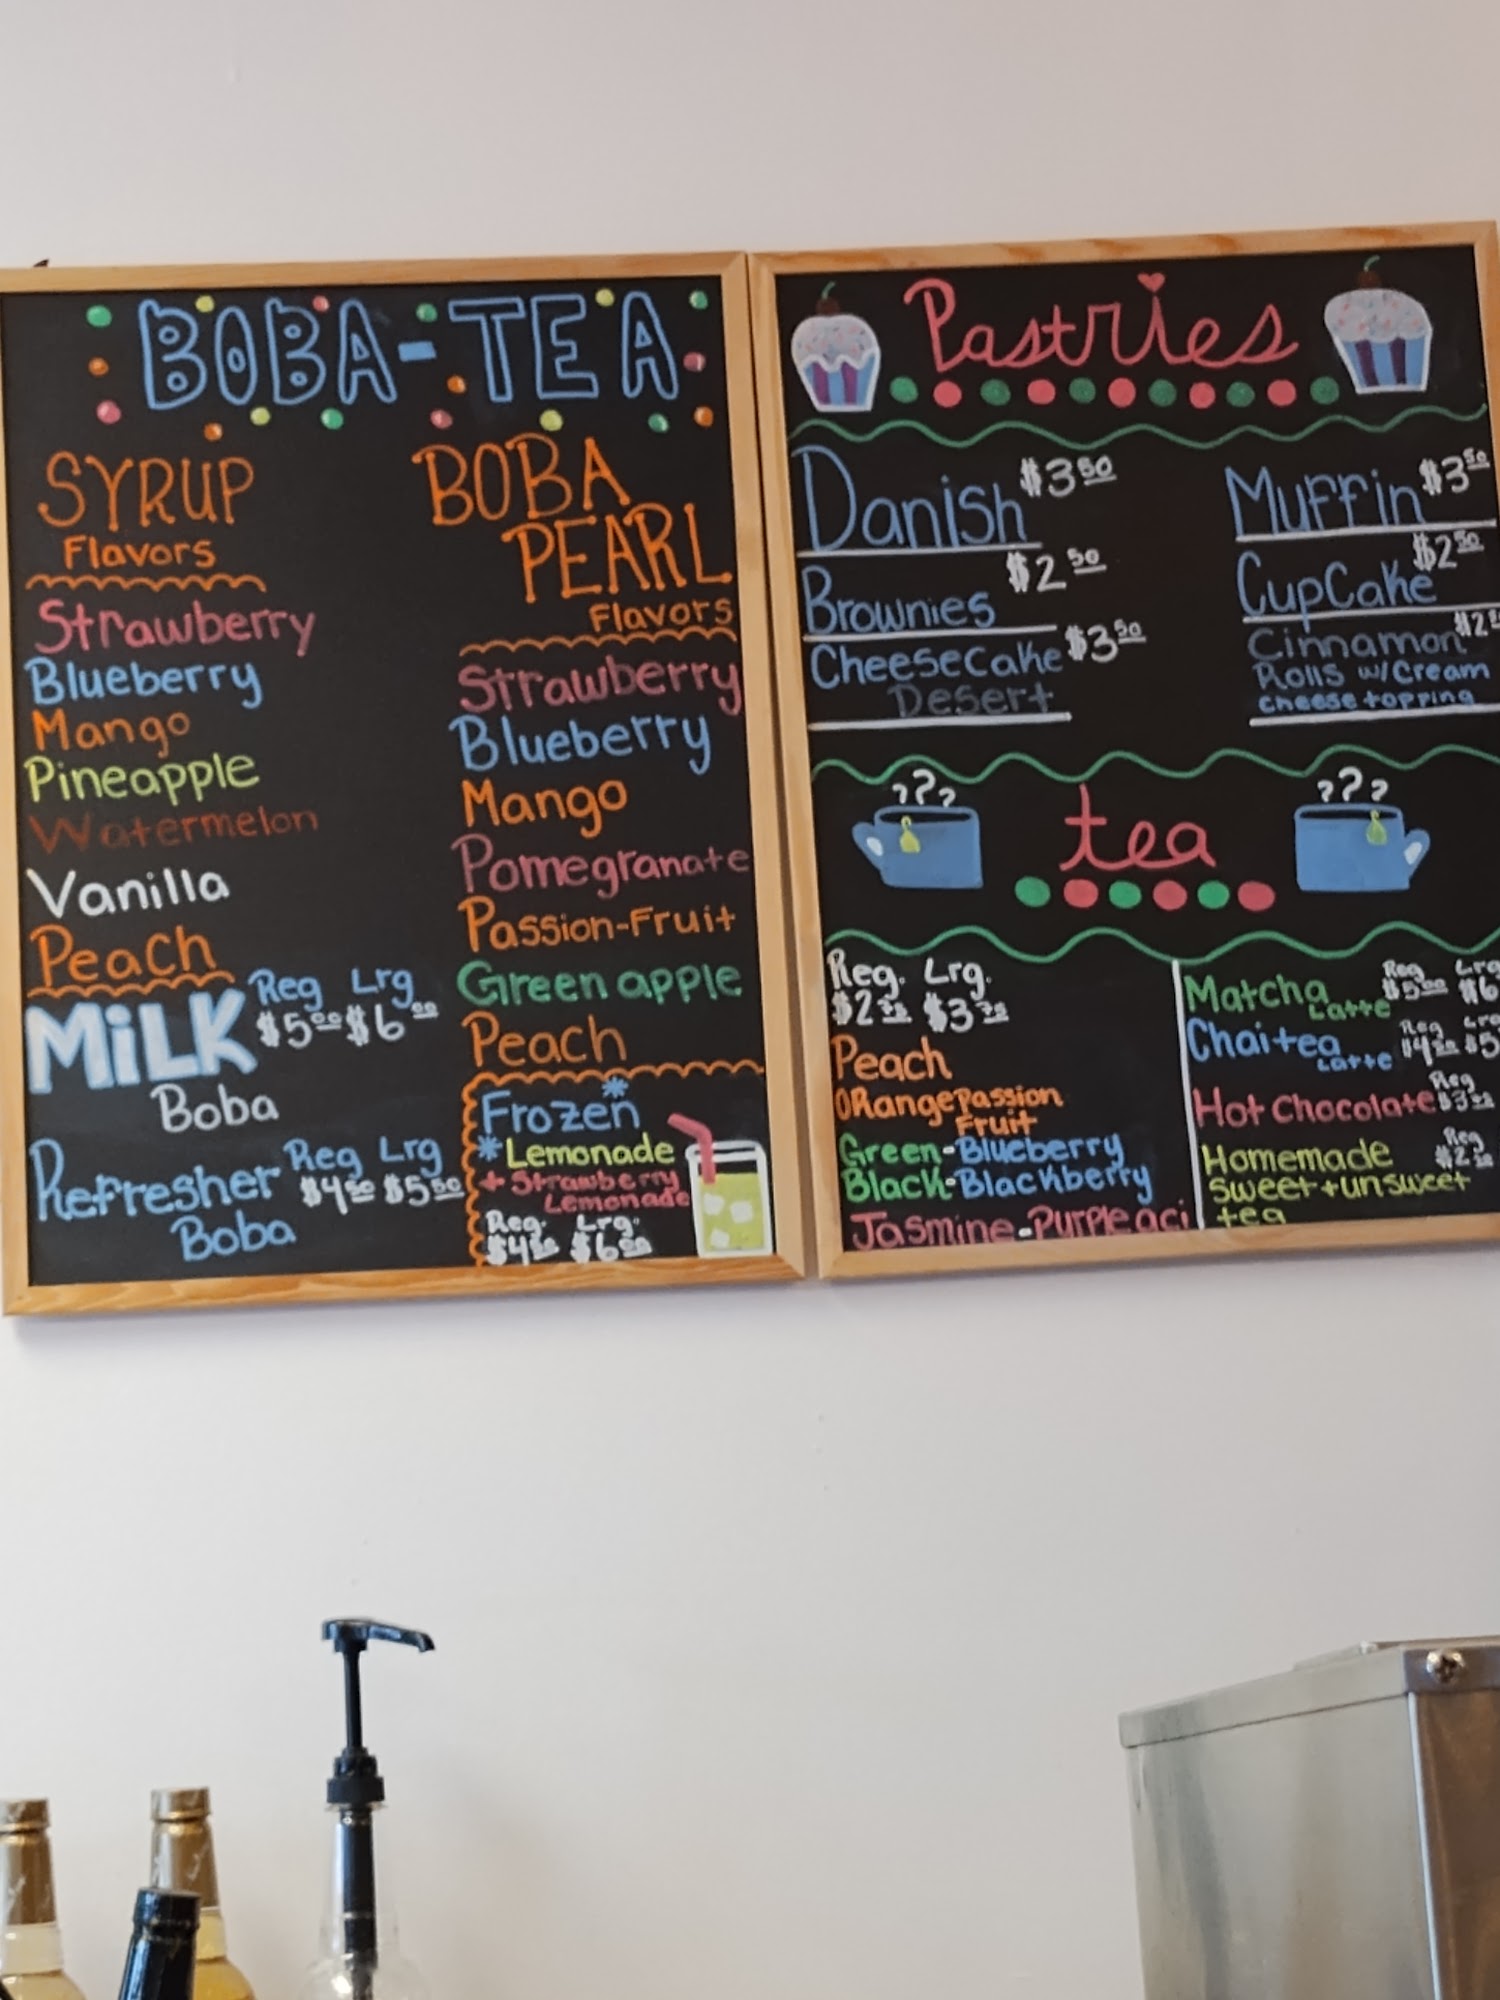 BOBA-TEA
SYRUP
Flavors
Strawberry
Blueberry
Mango
Pineapple
Watermelon
Vanilla
Peach
MiLK Reg Lrg
$5.00 $6.00
Boba
Refresher Reg Lrg
$4.50 $5.50
Boba
BOBA
PEARL
Flavors
Strawberry
Blueberry
Mango
Pomegranate
Passion-Fruit
Green apple
Peach
Frozen
*Lemonade
+ Strawberry
Lemonade
Reg. Lrg.
$4.50 $6.00
Pastries
Danish $3.50
Brownies $2.50
Cheesecake $3.50
Desert
Muffin $3.50
CupCake $2.50
Cinnamon
Rolls w/Cream
cheese topping
tea
Reg. Lrg.
$2.75 $3.75
Peach
ORange Passion
Fruit
Green-Blueberry
Black-Blackberry
Jasmine-Purple aci
Matcha Reg Lrg
Latte $5.00 $6
Chai tea Reg
Latte
Hot Chocolate Reg
Homemade Reg
sweet+unsweet
tea